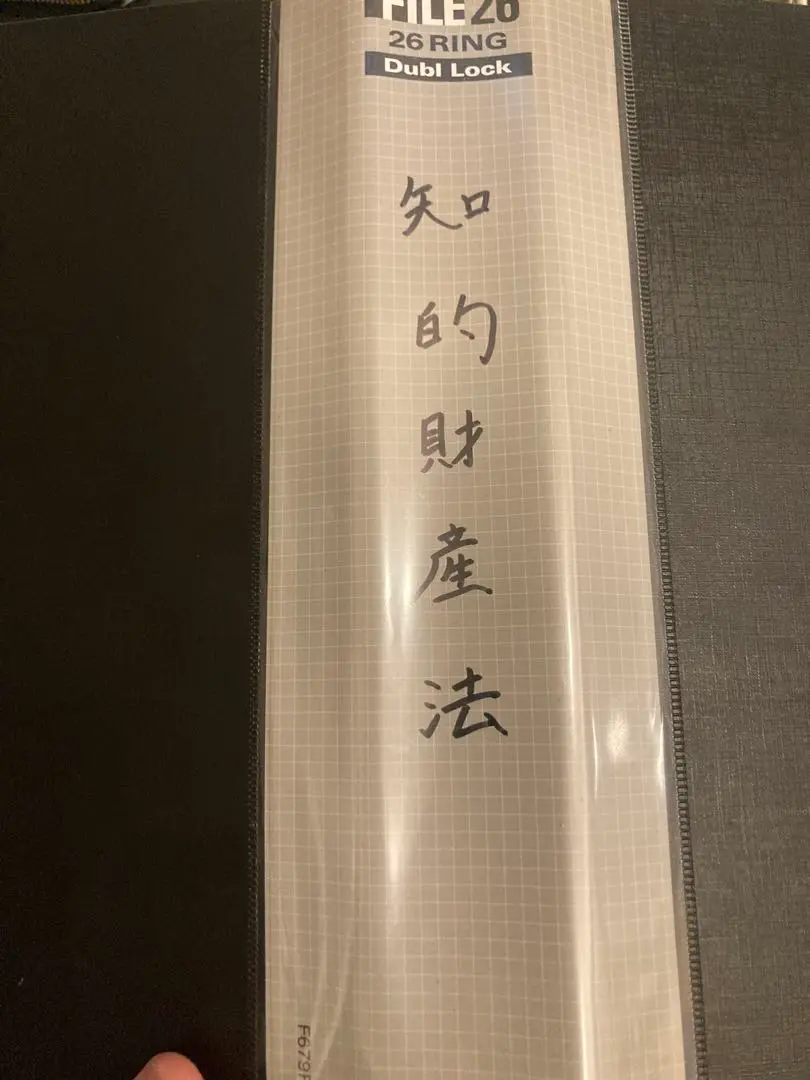 FILE 26
26 RING
Dubl Lock
知的財産法
F679